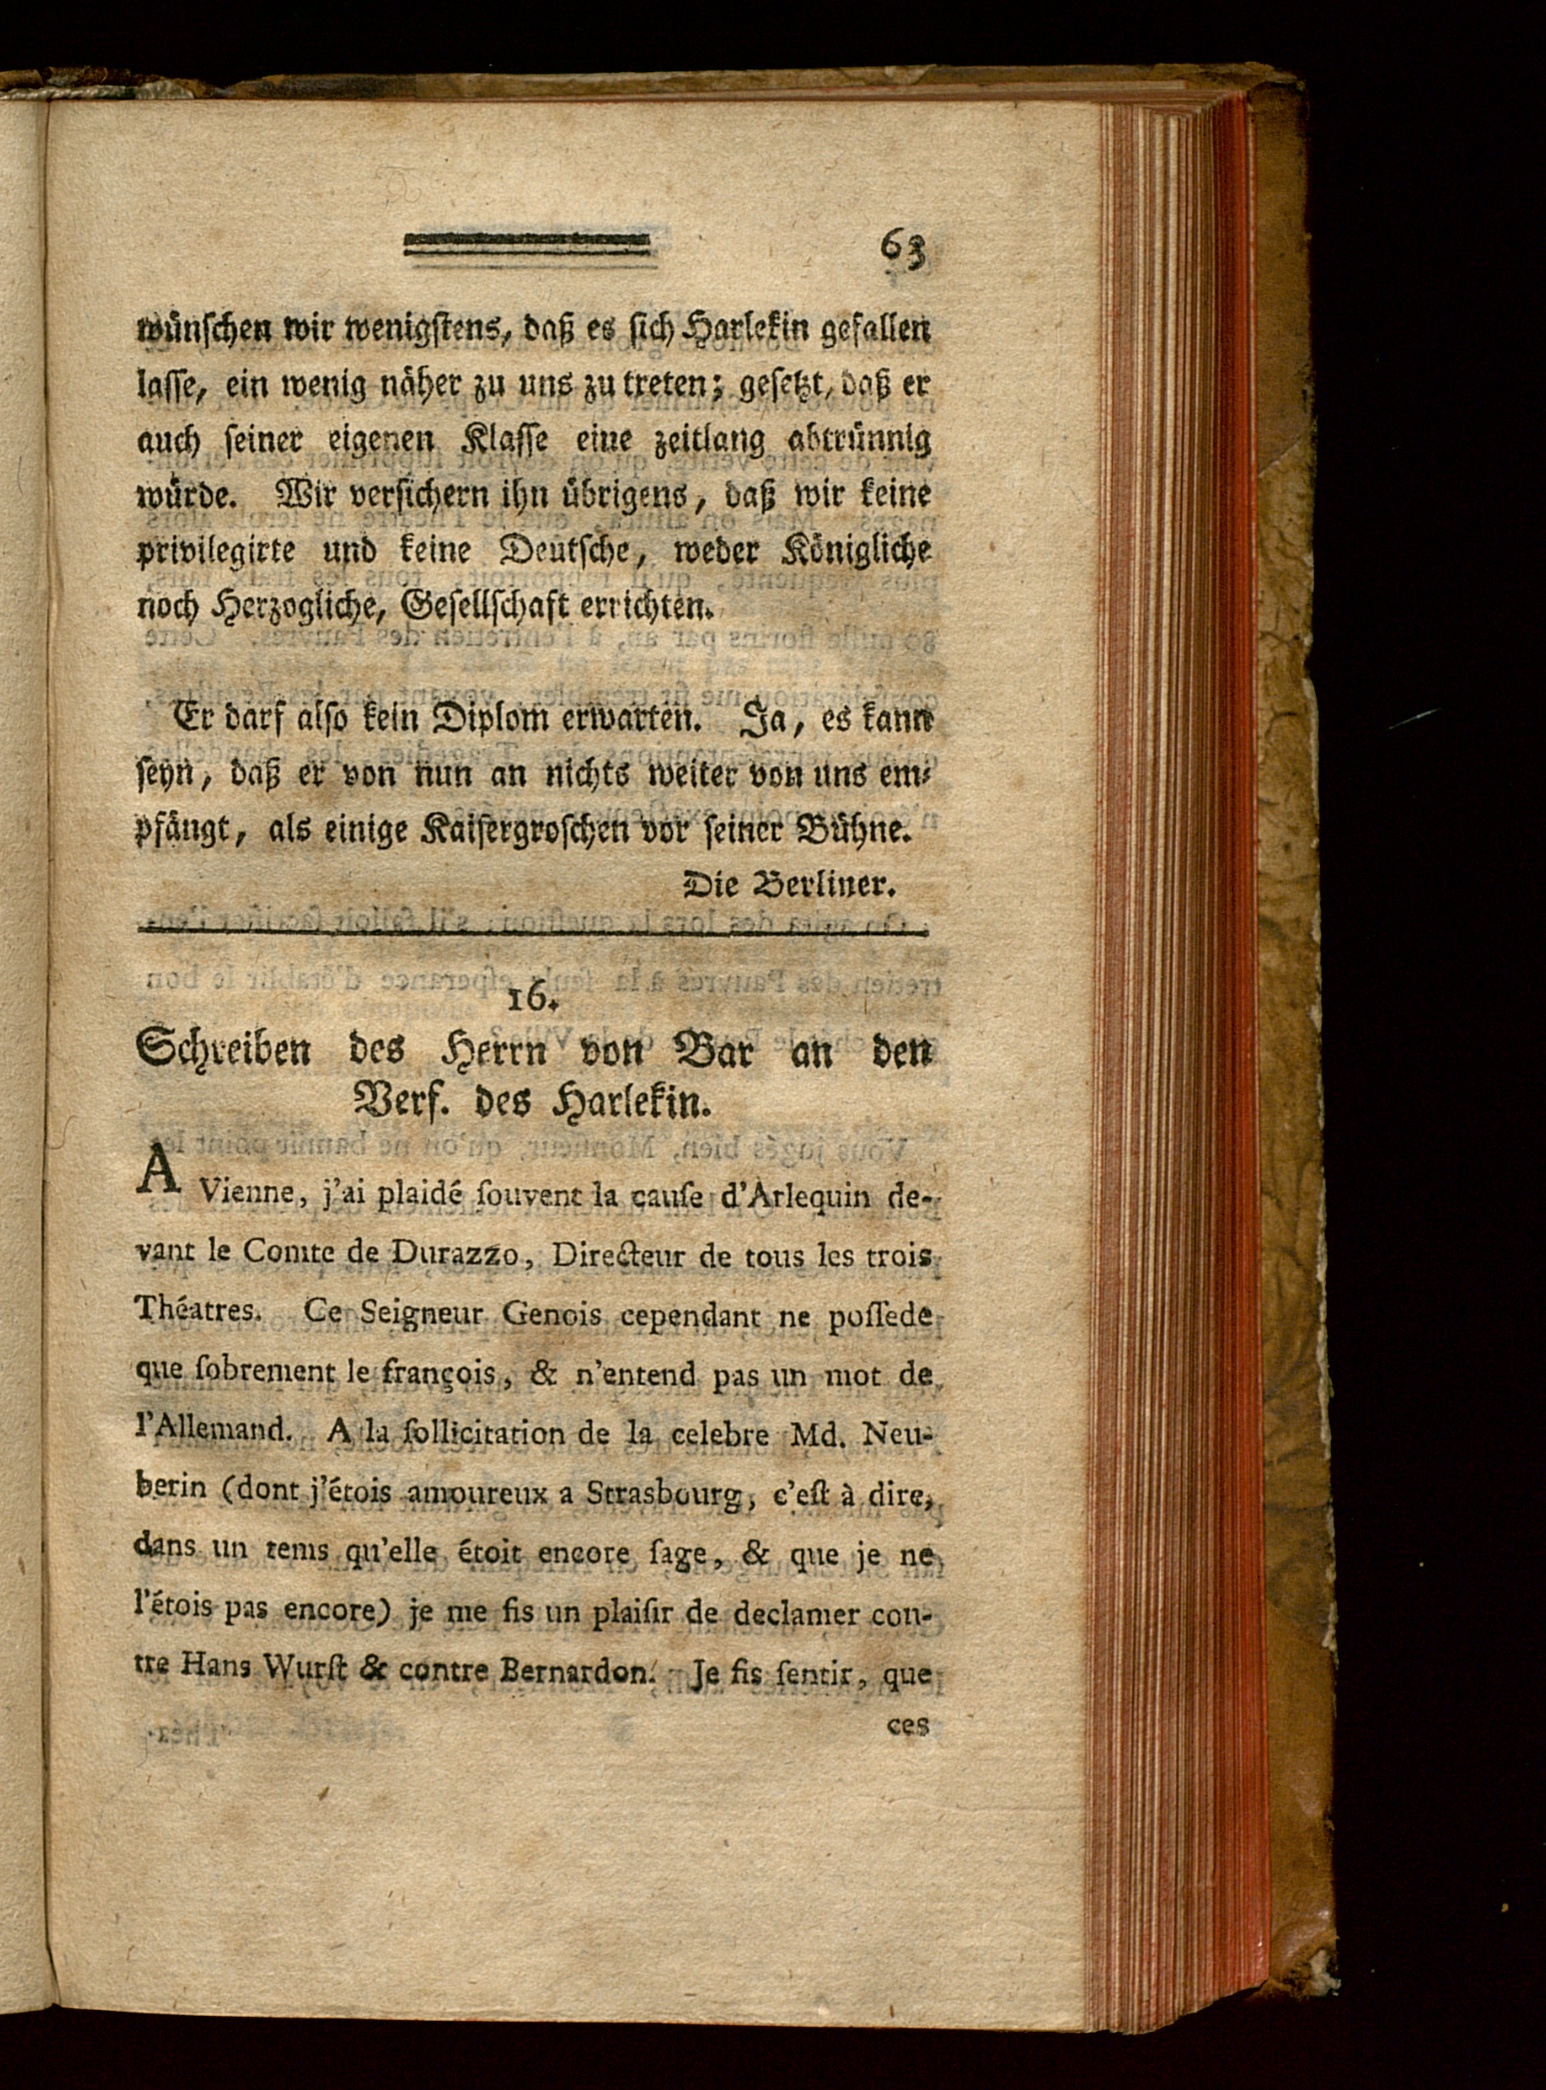 63
wünschen wir wenigstens, daß es sich Harlekin gefallen
lasse, ein wenig näher zu uns zu treten; gesetzt, daß er
auch seiner eigenen Klasse eine zeitlang abtrünnig
würde. Wir versichern ihn übrigens, daß wir keine
privilegirte und keine Deutsche, weder Königliche
noch Herzogliche, Gesellschaft errichten.
Er darf also kein Diplom erwarten. Ja, es kann
seyn, daß er von nun an nichts weiter von uns em-
pfängt, als einige Kaisergroschen vor seiner Bühne.
Die Berliner.
16.
Schreiben des Herrn von Bar an den
Verf. des Harlekin.
A Vienne, j'ai plaidé ſouvent la cauſe d'Arlequin de-
vant le Comte de Durazzo, Directeur de tous les trois
Théatres. Ce Seigneur Genois cependant ne poſſede
que ſobrement le françois, & n'entend pas un mot de
l'Allemand. A la ſollicitation de la celebre Md. Neu-
berin (dont j'étois amoureux a Strasbourg, c'eſt à dire,
dans un tems qu'elle étoit encore ſage, & que je ne
l'étois pas encore) je me fis un plaiſir de declamer con-
tre Hans Wurſt & contre Bernardon. Je fis ſentir, que
ces